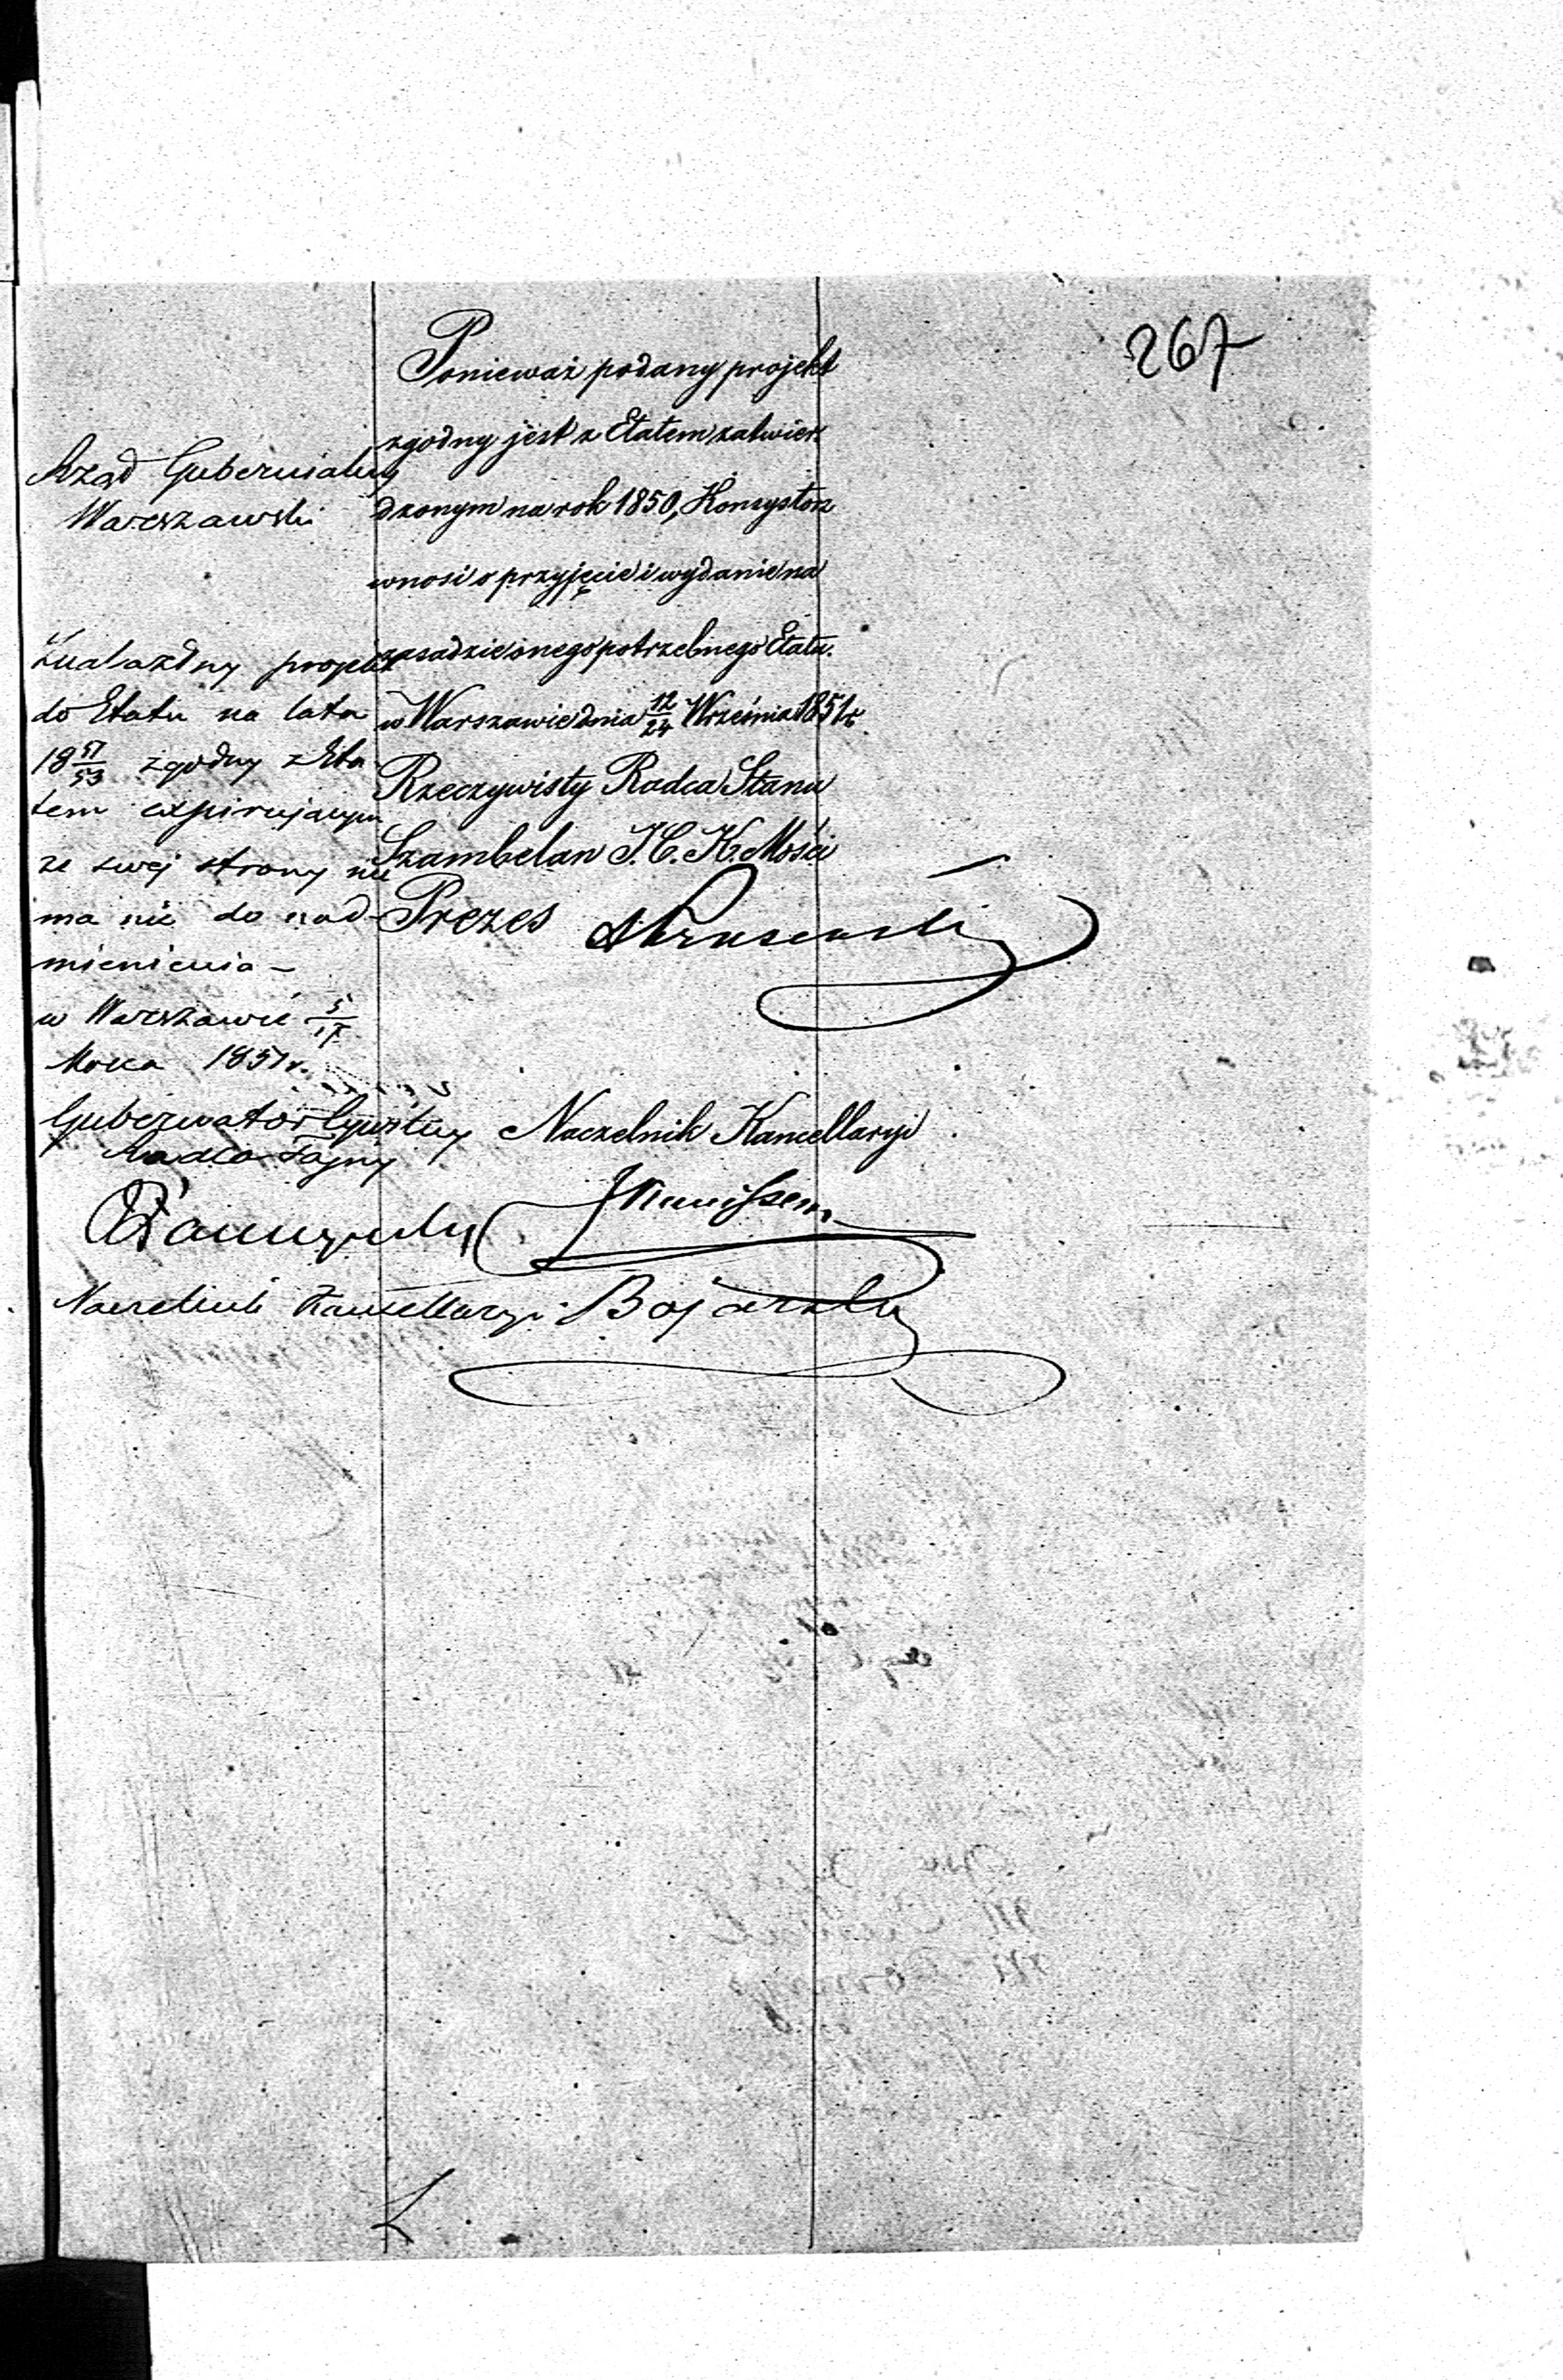 267
Rząd Gubernialny
Warszawski
Znalazłszy projekt
do Etatu na lata
18 51/53 zgodny z Eta
tem expirującym
ze swej strony nic
ma nic do nad-
mienienia –
w Warszawie 5/17
Marca 1851 r.
Gubernator Cywilny
Radca Tajny
Naczelnik Kancellaryi
Ponieważ podany projekt
zgodny jest z Etatem zatwier
dzonym na rok 1850, Konsystorz
wnosi o przyjęcie i wydanie na
zasadzie onego potrzebnego Etatu.
w Warszawie dnia 12/24 Września 1851 r.
Rzeczywisty Radca Stanu
Szambelan J. C. K. Mości
Prezes
Naczelnik Kancellaryi